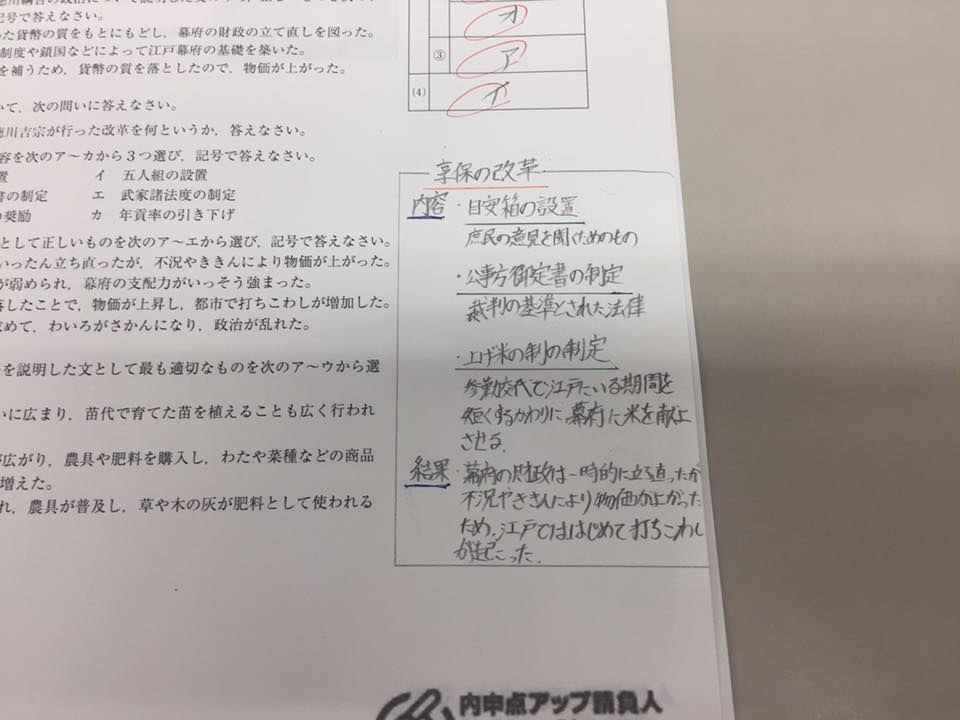 記号で答えなさい。
った貨幣の質をもとにもどし，幕府の財政の立て直しを図った。
制度や鎖国などによって江戸幕府の基礎を築いた。
を補うため，貨幣の質を落としたので，物価が上がった。
いて，次の問いに答えなさい。
徳川吉宗が行った改革を何というか，答えなさい。
容を次のア～カから３つ選び，記号で答えなさい。
置 イ 五人組の設置
書の制定 エ 武家諸法度の制定
の奨励 カ 年貢率の引き下げ
として正しいものを次のア～エから選び，記号で答えなさい。
いったん立ち直ったが，不況やききんにより物価が上がった。
が弱められ，幕府の支配力がいっそう強まった。
落したことで，物価が上昇し，都市で打ちこわしが増加した。
求めて，わいろがさかんになり，政治が乱れた。
を説明した文として最も適切なものを次のア～ウから選
いに広まり，苗代で育てた苗を植えることも広く行われ
が広がり，農具や肥料を購入し，わたや菜種などの商品
増えた。
れ，農具が普及し，草や木の灰が肥料として使われる
オ
③ ア
(4) イ
享保の改革
内容 ・目安箱の設置
庶民の意見を聞くためのもの
・公事方御定書の制定
裁判の基準とされた法律
・上げ米の制の制定
参勤交代で江戸にいる期間を
短くするかわりに幕府に米を献上
させる.
結果 ・幕府の財政は一時的に立ち直ったが
不況やききんにより物価が上がった
ため.江戸でははじめて打ちこわし
が起こった.
内申点アップ請負人